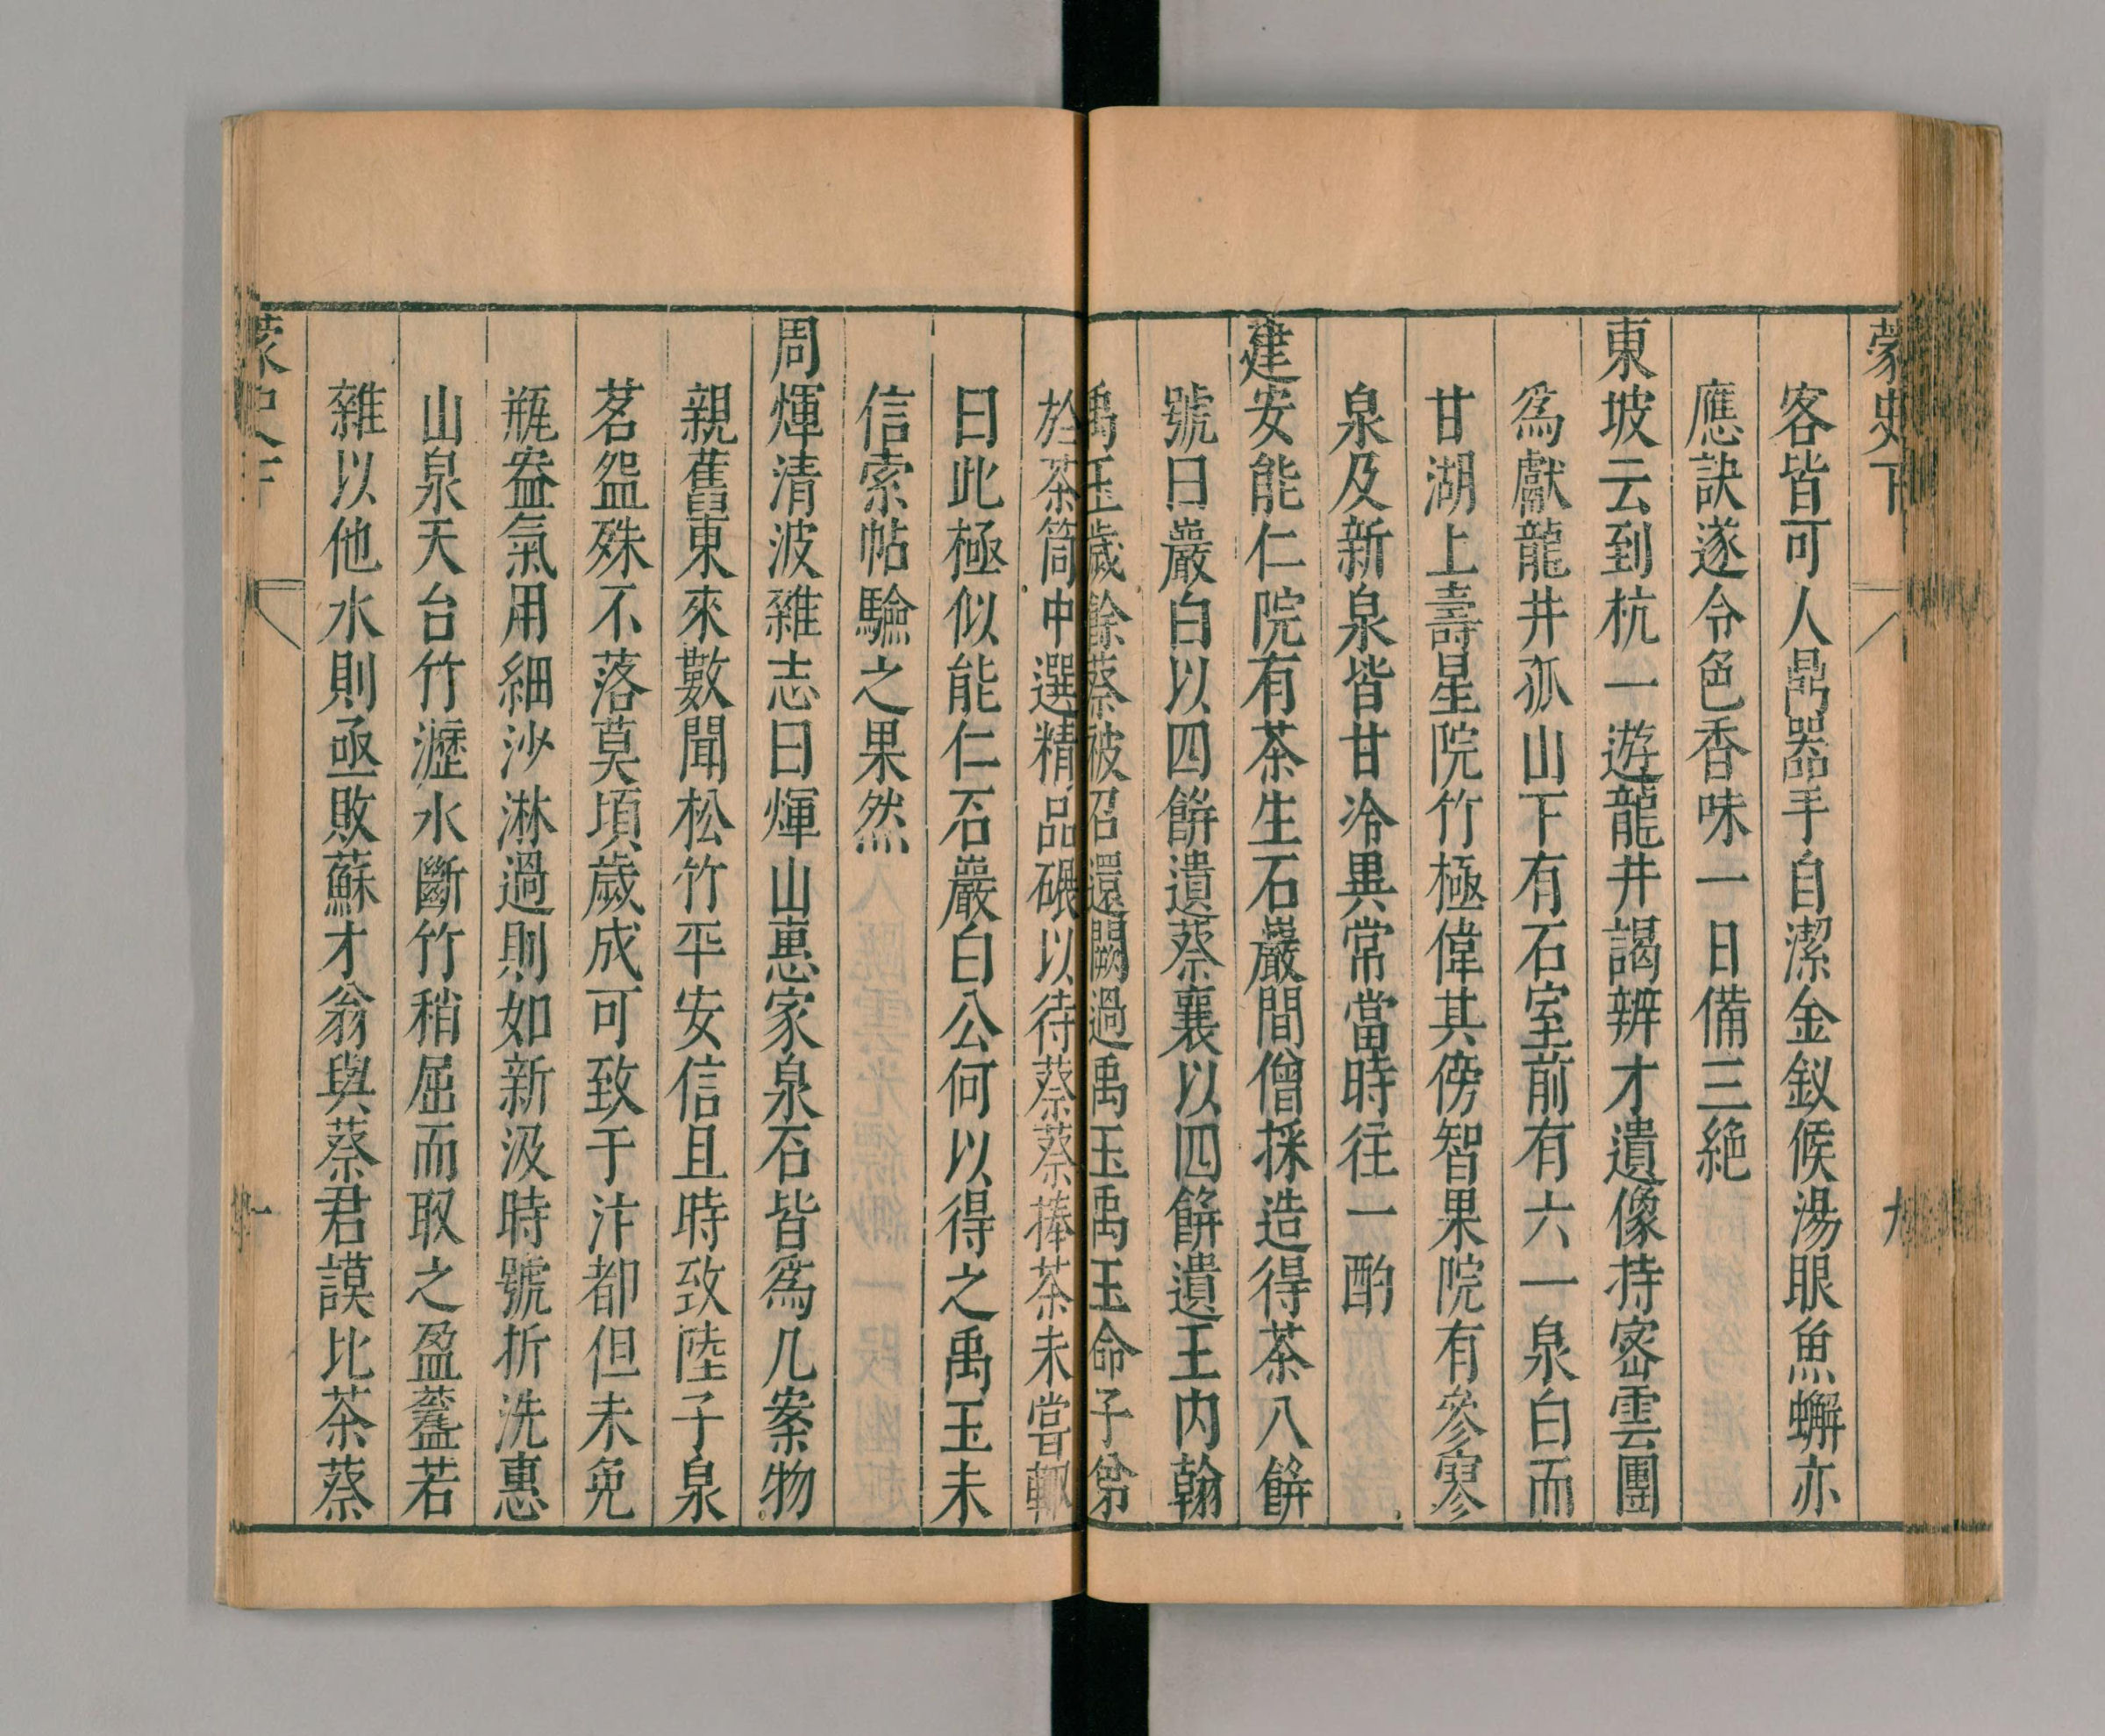 蒙史下 九
客皆可人鼎器手自潔金釵候湯眼魚蠏亦
應訣遂令色香味一日備三絶
東坡云到杭一遊龍井謁辨才遺像持密雲團
爲獻龍井孤山下有石室前有六一泉白而
甘湖上壽星院竹極偉其傍智果院有參寥
泉及新泉皆甘冷異常當時往一酌
建安能仁院有茶生石巖間僧採造得茶八餅
號曰巖白以四餅遺蔡襄以四餅遺王内翰
禹玉歲餘蔡被召還闕過禹玉禹玉命子弟
於茶筒中選精品碾以待蔡蔡捧茶未嘗輒
曰此極似能仁石巖白公何以得之禹玉未
信索帖驗之果然
周煇清波雜志曰煇山惠家泉石皆爲几案物
親舊東來數聞松竹平安信且時致陸子泉
茗盌殊不落莫頃歲成可致于汴都但未免
瓶盎氣用細沙淋過則如新汲時號折洗惠
山泉天台竹瀝水斷竹稍屈而取之盈虀若
雜以他水則亟敗蘇才翁與蔡君謨比茶蔡
蒙史下